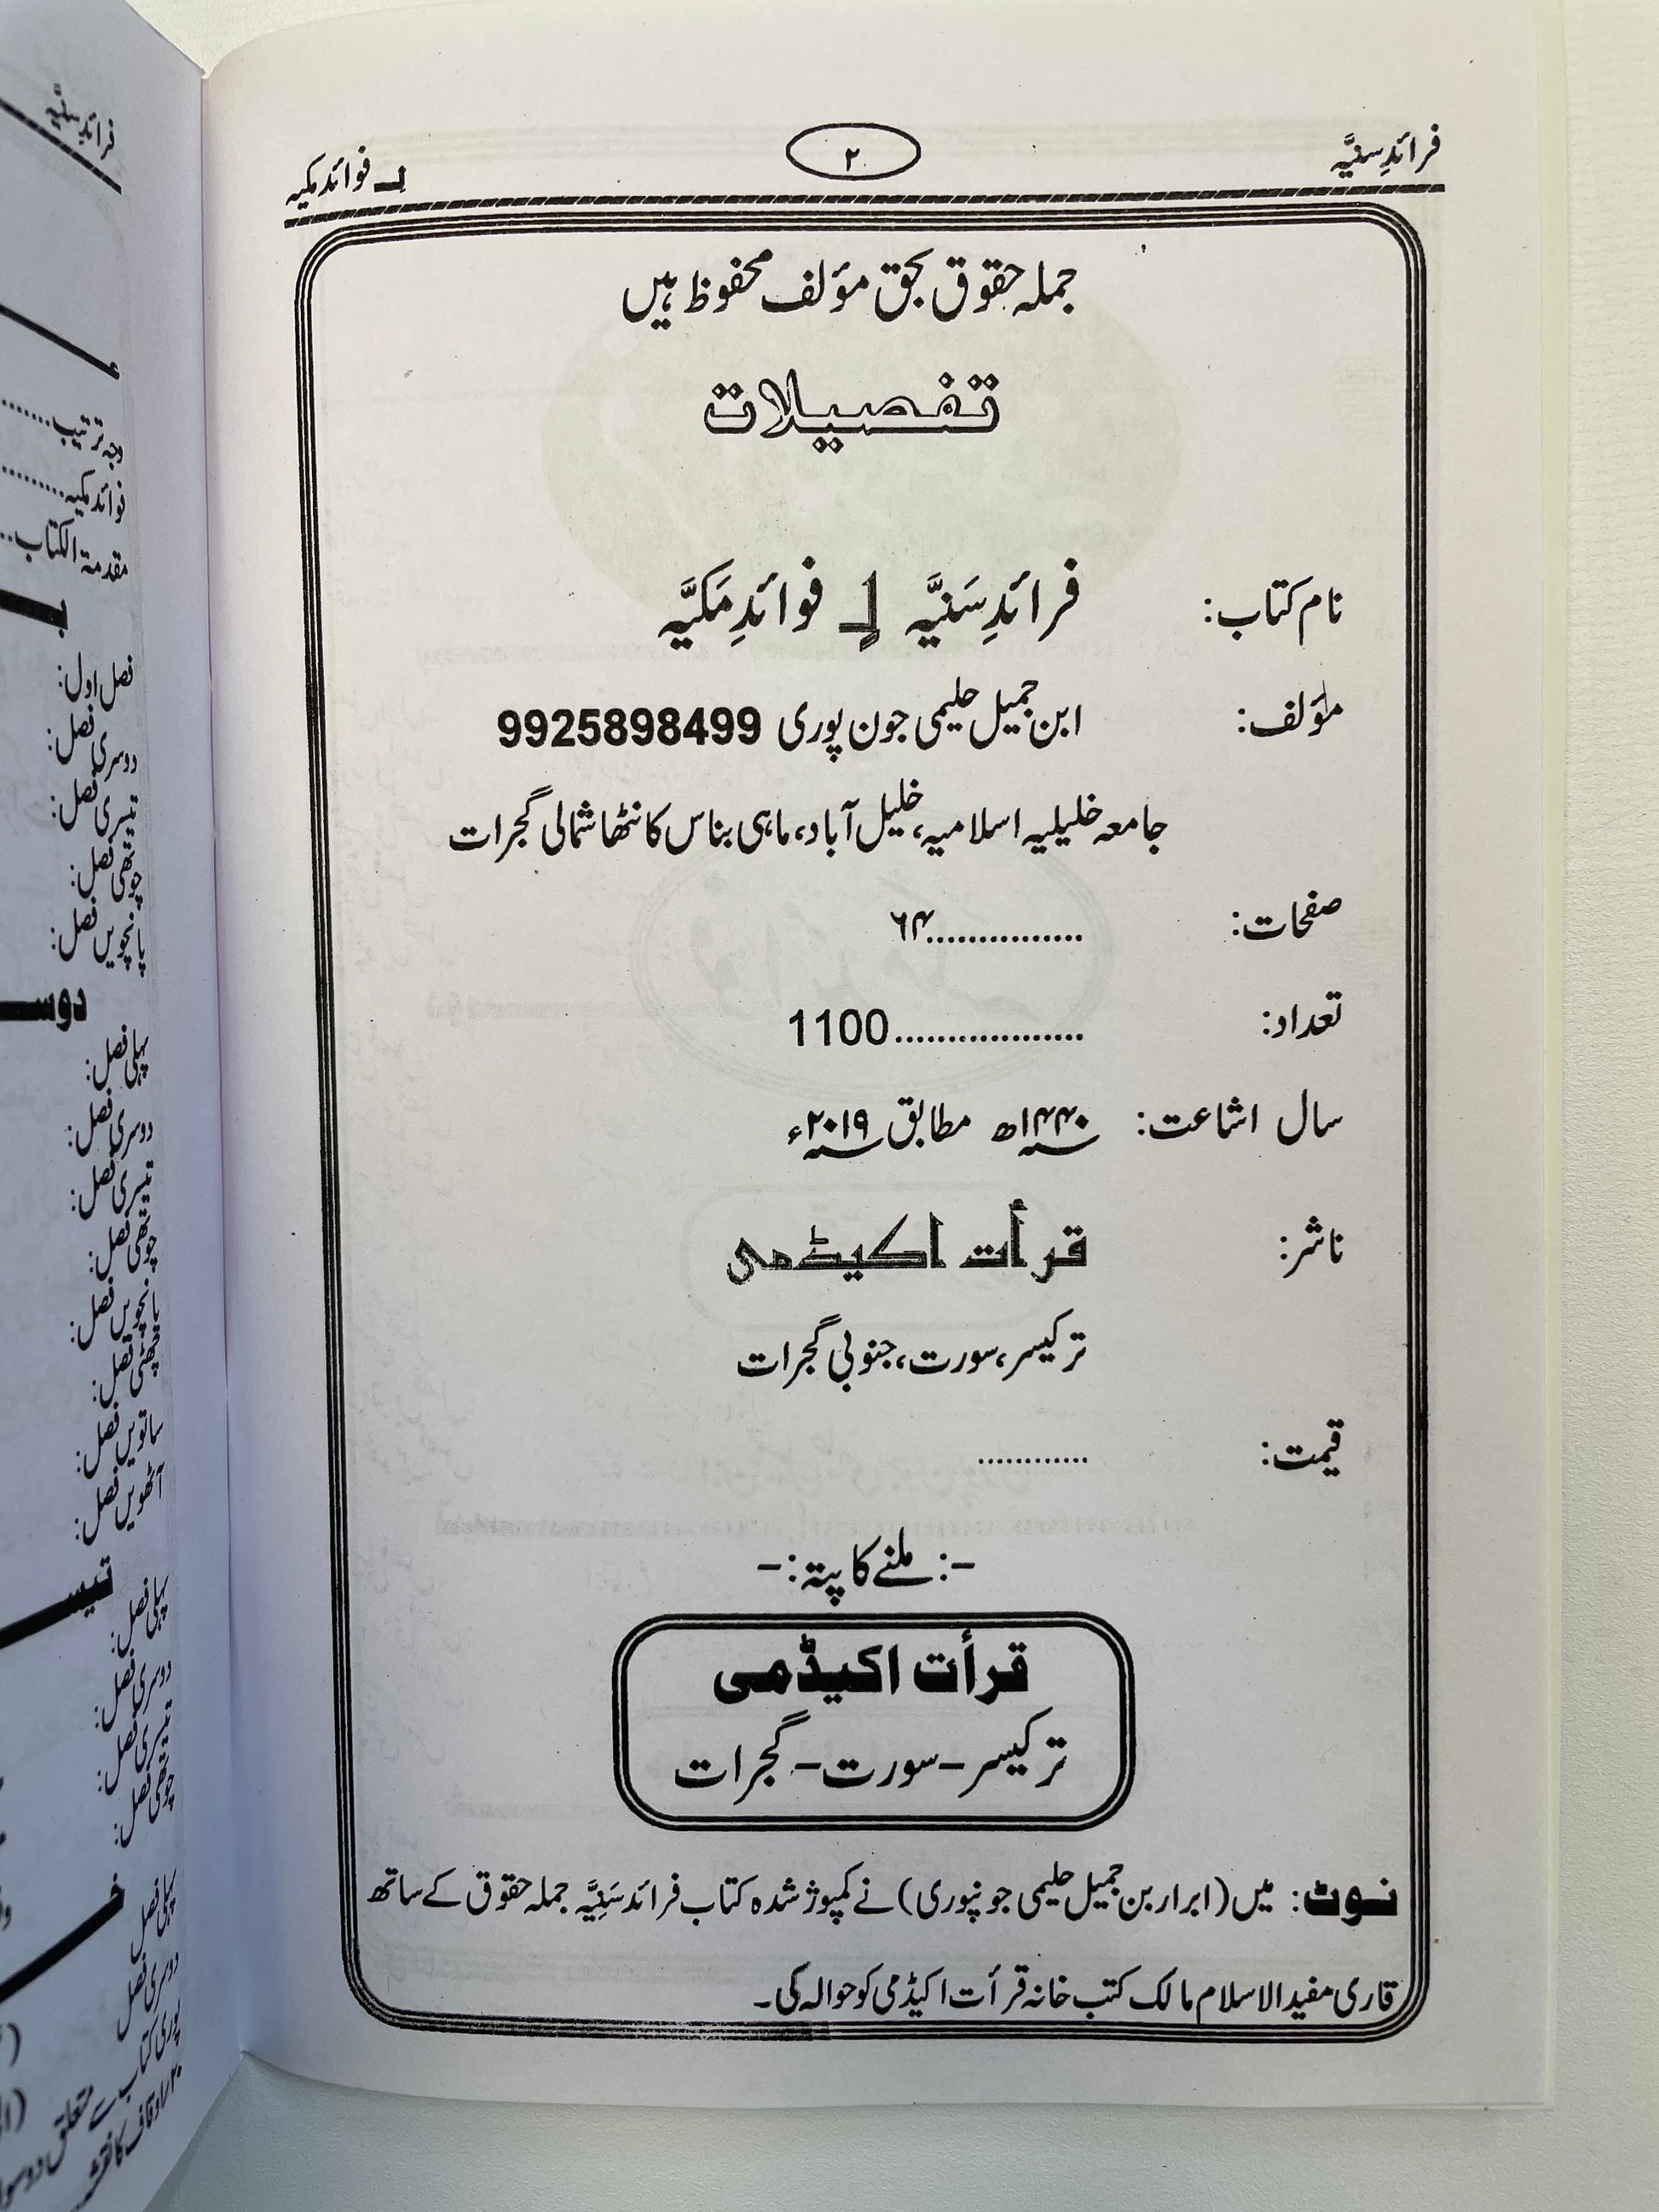 فرائدِ سنیَّہ
۲
لـِ فوائد مکیہ
جملہ حقوق بحق مؤلف محفوظ ہیں
تفصیلات
نام کتاب: فرائدِ سَنیَّہ لـِ فوائدِ مَکیَّہ
مؤلف: ابن جمیل حلیمی جون پوری 9925898499
جامعہ خلیلیہ اسلامیہ، خلیل آباد، ماہی بناس کانٹھا شمالی گجرات
صفحات: ...............۶۴
تعداد: ..................1100
سال اشاعت: ۱۴۴۰ھ مطابق ۲۰۱۹ء
ناشر: قرأت اکیڈمی
ترکیسر، سورت، جنوبی گجرات
قیمت: ............
-: ملنے کا پتہ :-
قرأت اکیڈمی
ترکیسر - سورت - گجرات
نوٹ: میں (ابرار بن جمیل حلیمی جونپوری) نے کمپوز شدہ کتاب فرائد سَنِیَّہ جملہ حقوق کے ساتھ
قاری مفید الاسلام مالک کتب خانہ قرأت اکیڈمی کو حوالہ کی۔
فرائدِ سنیَّہ
وجہ ترتیب........
فوائد مکیہ........
مقدمۃ الکتاب..
فصل اول:
دوسری فصل:
تیسری فصل:
چوتھی فصل:
پانچویں فصل:
دوسـ
پہلی فصل:
دوسری فصل:
تیسری فصل:
چوتھی فصل:
پانچویں فصل:
چھٹی فصل:
ساتویں فصل:
آٹھویں فصل:
تیسـ
پہلی فصل:
دوسری فصل:
تیسری فصل:
چوتھی فصل:
پہلی فصل
دوسری فصل
پوری کتاب سے متعلق دوسو